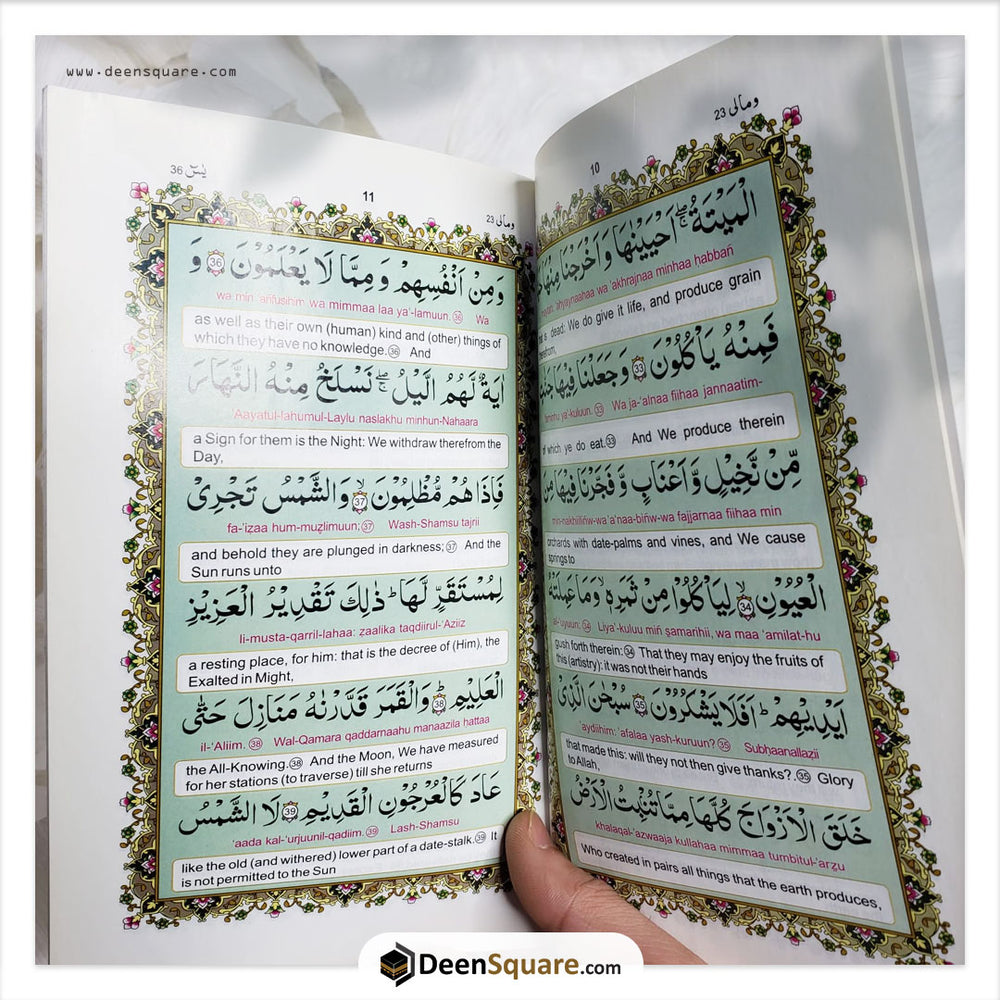 www.deensquare.com
10
وَمَالِیَ 23
الْمَيْتَةُ ۖ اَحْيَيْنٰهَا وَ اَخْرَجْنَا مِنْهَا
ahyaynaahaa wa 'akhrajnaa minhaa ḥabbañ
dead: We do give it life, and produce grain
therefrom,
فَمِنْهُ يَاْكُلُوْنَ ۝33 وَ جَعَلْنَا فِيْهَا
ya'-kuluun. 33 Wa ja-'alnaa fiihaa jannaatim-
of which ye do eat.33 And We produce therein
مِّنْ نَّخِيْلٍ وَّ اَعْنَابٍ وَّ فَجَّرْنَا فِيْهَا مِنَ
min-nakhiiliñw-wa 'a'naa-biñw-wa fajjarnaa fiihaa min
orchards with date-palms and vines, and We cause
springs to
الْعُيُوْنِ ۝34 لِيَاْكُلُوْا مِنْ ثَمَرِهٖ ۙ وَ مَا عَمِلَتْهُ
al-'uyuun: 34 Liya'-kuluu miñ ṣamarihii, wa maa 'amilat-hu
gush forth therein:34 That they may enjoy the fruits of
this (artistry): it was not their hands
اَيْدِيْهِمْ ؕ اَفَلَا يَشْكُرُوْنَ ۝35 سُبْحٰنَ الَّذِيْ
'aydiihim: 'afalaa yash-kuruun? 35 Subhaanallaẓii
that made this: will they not then give thanks?.35 Glory
to Allah,
خَلَقَ الْاَزْوَاجَ كُلَّهَا مِمَّا تُنْۢبِتُ الْاَرْضُ
khalaqal-'azwaaja kullahaa mimmaa tumbitul-'arẓu
Who created in pairs all things that the earth produces,
يٰسٓ 36
11
وَمَالِیَ 23
وَ مِنْ اَنْفُسِهِمْ وَ مِمَّا لَا يَعْلَمُوْنَ ۝36 وَ
wa min 'añfusihim wa mimmaa laa ya'-lamuun.36 Wa
as well as their own (human) kind and (other) things of
which they have no knowledge.36 And
اٰيَةٌ لَّهُمُ الَّيْلُ ۖ نَسْلَخُ مِنْهُ النَّهَارَ
Aayatul-lahumul-Laylu naslakhu minhun-Nahaara
a Sign for them is the Night: We withdraw therefrom the
Day,
فَاِذَا هُمْ مُّظْلِمُوْنَ ۙ۝37 وَ الشَّمْسُ تَجْرِيْ
fa-'iẓaa hum-muẓlimuun;37 Wash-Shamsu tajrii
and behold they are plunged in darkness;37 And the
Sun runs unto
لِمُسْتَقَرٍّ لَّهَا ؕ ذٰلِكَ تَقْدِيْرُ الْعَزِيْزِ
li-musta-qarril-lahaa: ẓaalika taqdiirul-'Aziiz
a resting place, for him: that is the decree of (Him), the
Exalted in Might,
الْعَلِيْمِ ؕ۝38 وَ الْقَمَرَ قَدَّرْنٰهُ مَنَازِلَ حَتّٰى
il-'Aliim. 38 Wal-Qamara qaddarnaahu manaazila hattaa
the All-Knowing.38 And the Moon, We have measured
for her stations (to traverse) till she returns
عَادَ كَالْعُرْجُوْنِ الْقَدِيْمِ ۝39 لَا الشَّمْسُ
'aada kal-'urjuunil-qadiim. 39 Lash-Shamsu
like the old (and withered) lower part of a date-stalk.39 It
is not permitted to the Sun
DeenSquare.com